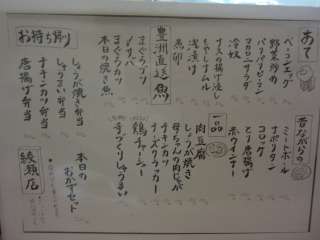 あて
ベーコンエッグ
野菜炒め
パリパリピーマン
マカロニサラダ
冷奴
ナスの揚げ浸し
もやしナムル
浅漬け
魚卵
豊洲直送魚
まぐろブツ
〆サバ
まぐろカツ
本日の焼き魚
お持ち帰り
しょうが焼き弁当
しゅうまい弁当
チキンカツ弁当
唐揚げ弁当
昔ながらの
ミートボール
ナポリタン
コロッケ
とり唐揚げ
赤ウインナー
一品
肉豆腐
母ちゃんの肉じゃが
しょうが焼き
チキンカツ
チーズクラッカー
鶏チャーシュー
手づくりしゅうまい
本日の
おかずセット
綾瀬店